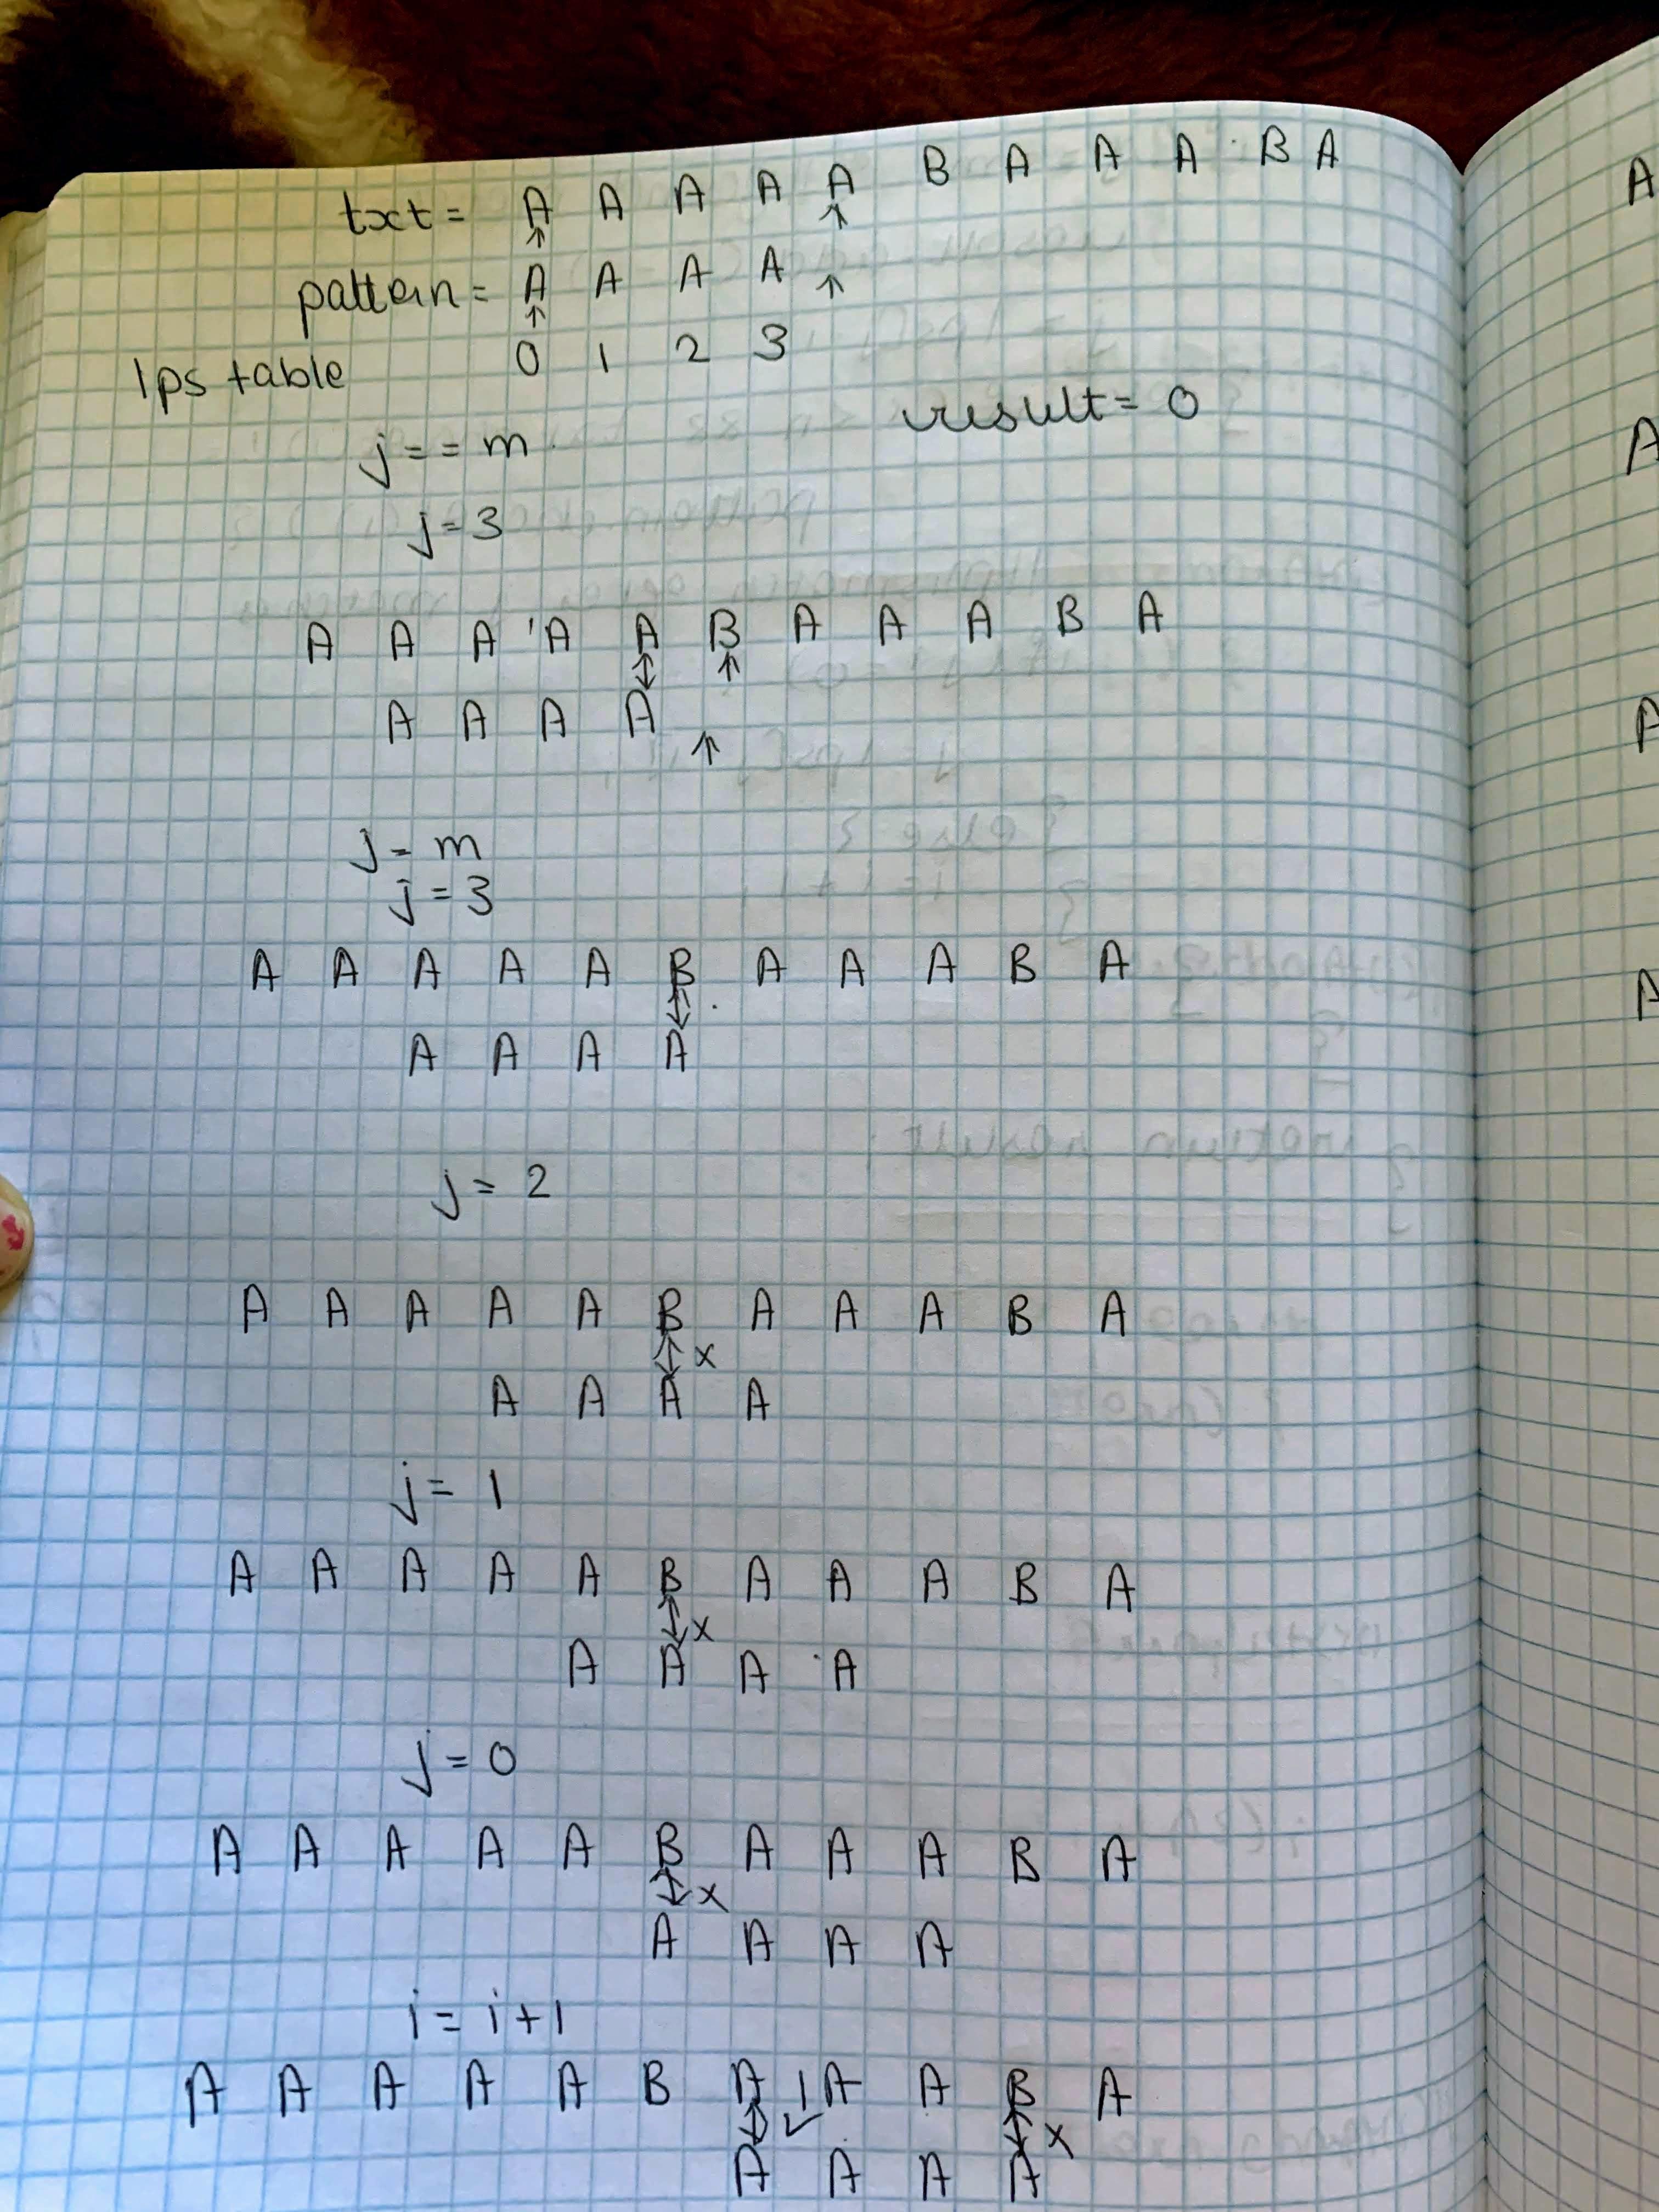 txt = A A A A A B A A A B A
pattern = A A A A
lps table 0 1 2 3
result = 0
j = = m
j = 3
A A A A A B A A A B A
A A A A
j = m
j = 3
A A A A A B A A A B A
A A A A
j = 2
A A A A A B A A A B A
x
A A A A
j = 1
A A A A A B A A A B A
x
A A A A
j = 0
A A A A A B A A A B A
x
A A A A
i = i + 1
A A A A A B A A A B A
x
A A A A
A
A
A
A